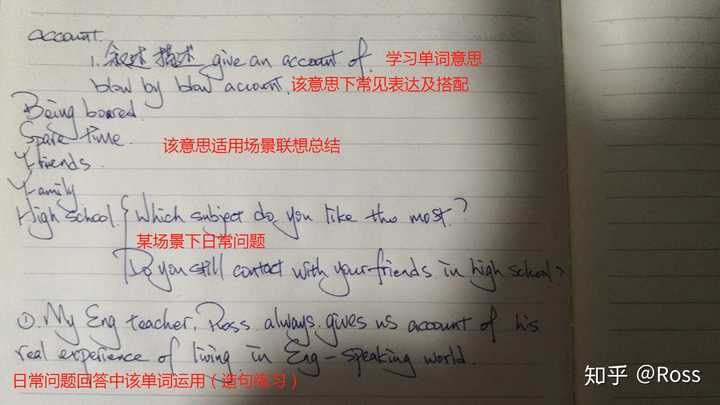 account.
1. 叙述 描述 give an account of. 学习单词意思
blow by blow account. 该意思下常见表达及搭配
Being boared.
Spare time. 该意思适用场景联想总结
Friends.
Family
High school. { Which subject do you like the most?
某场景下日常问题
Do you still contact with your friends in high school?
①. My Eng teacher, Ross. always. gives us account of his
real experience of living in Eng-speaking world.
日常问题回答中该单词运用（造句练习）
知乎 @Ross